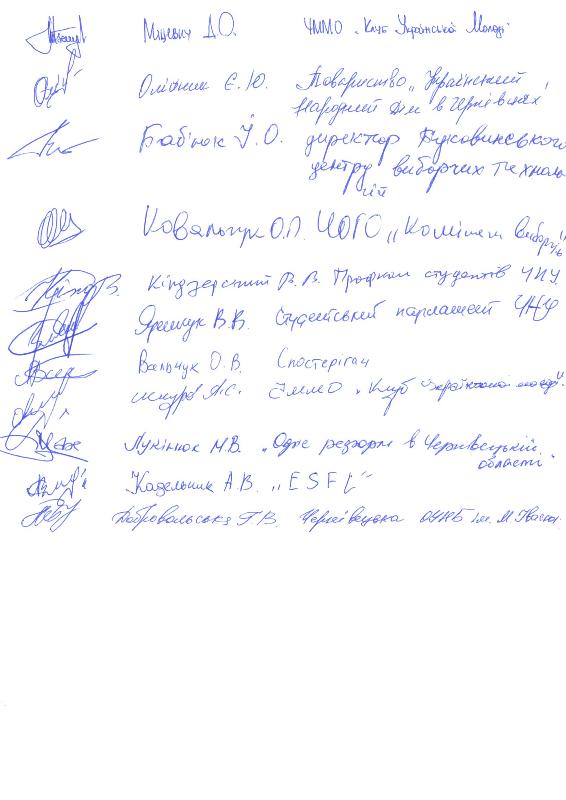 Міцевич Д.О. ЧММО „Клуб Української Молоді"
Олійник Є.Ю. Товариство „Український
Народний дім в Чернівцях"
Бабінюк Й.О. директор Буковинського
центру виборчих техноло
гій
Ковальчук О.П. ЧОГО „Комітет виборців"
Кіндзерский В.В. Профком студентів ЧНУ
Яремчук В.В. Студентський парламент ЧНУ
Вальчук О.В. Спостерігач
А.С. ЧММО „Клуб української молоді".
Лукінюк М.В. „Одне в Чернівецькій
області".
Кадельник А.В. „ESFL"
Добровольська Г.В. Чернівецька ОУНБ ім. М Івасюка